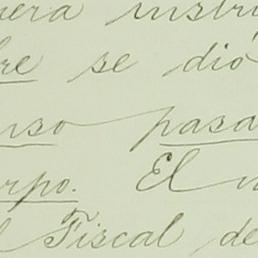 nera instru
re se dió
nso pasa
rpo. El
l Fiscal de